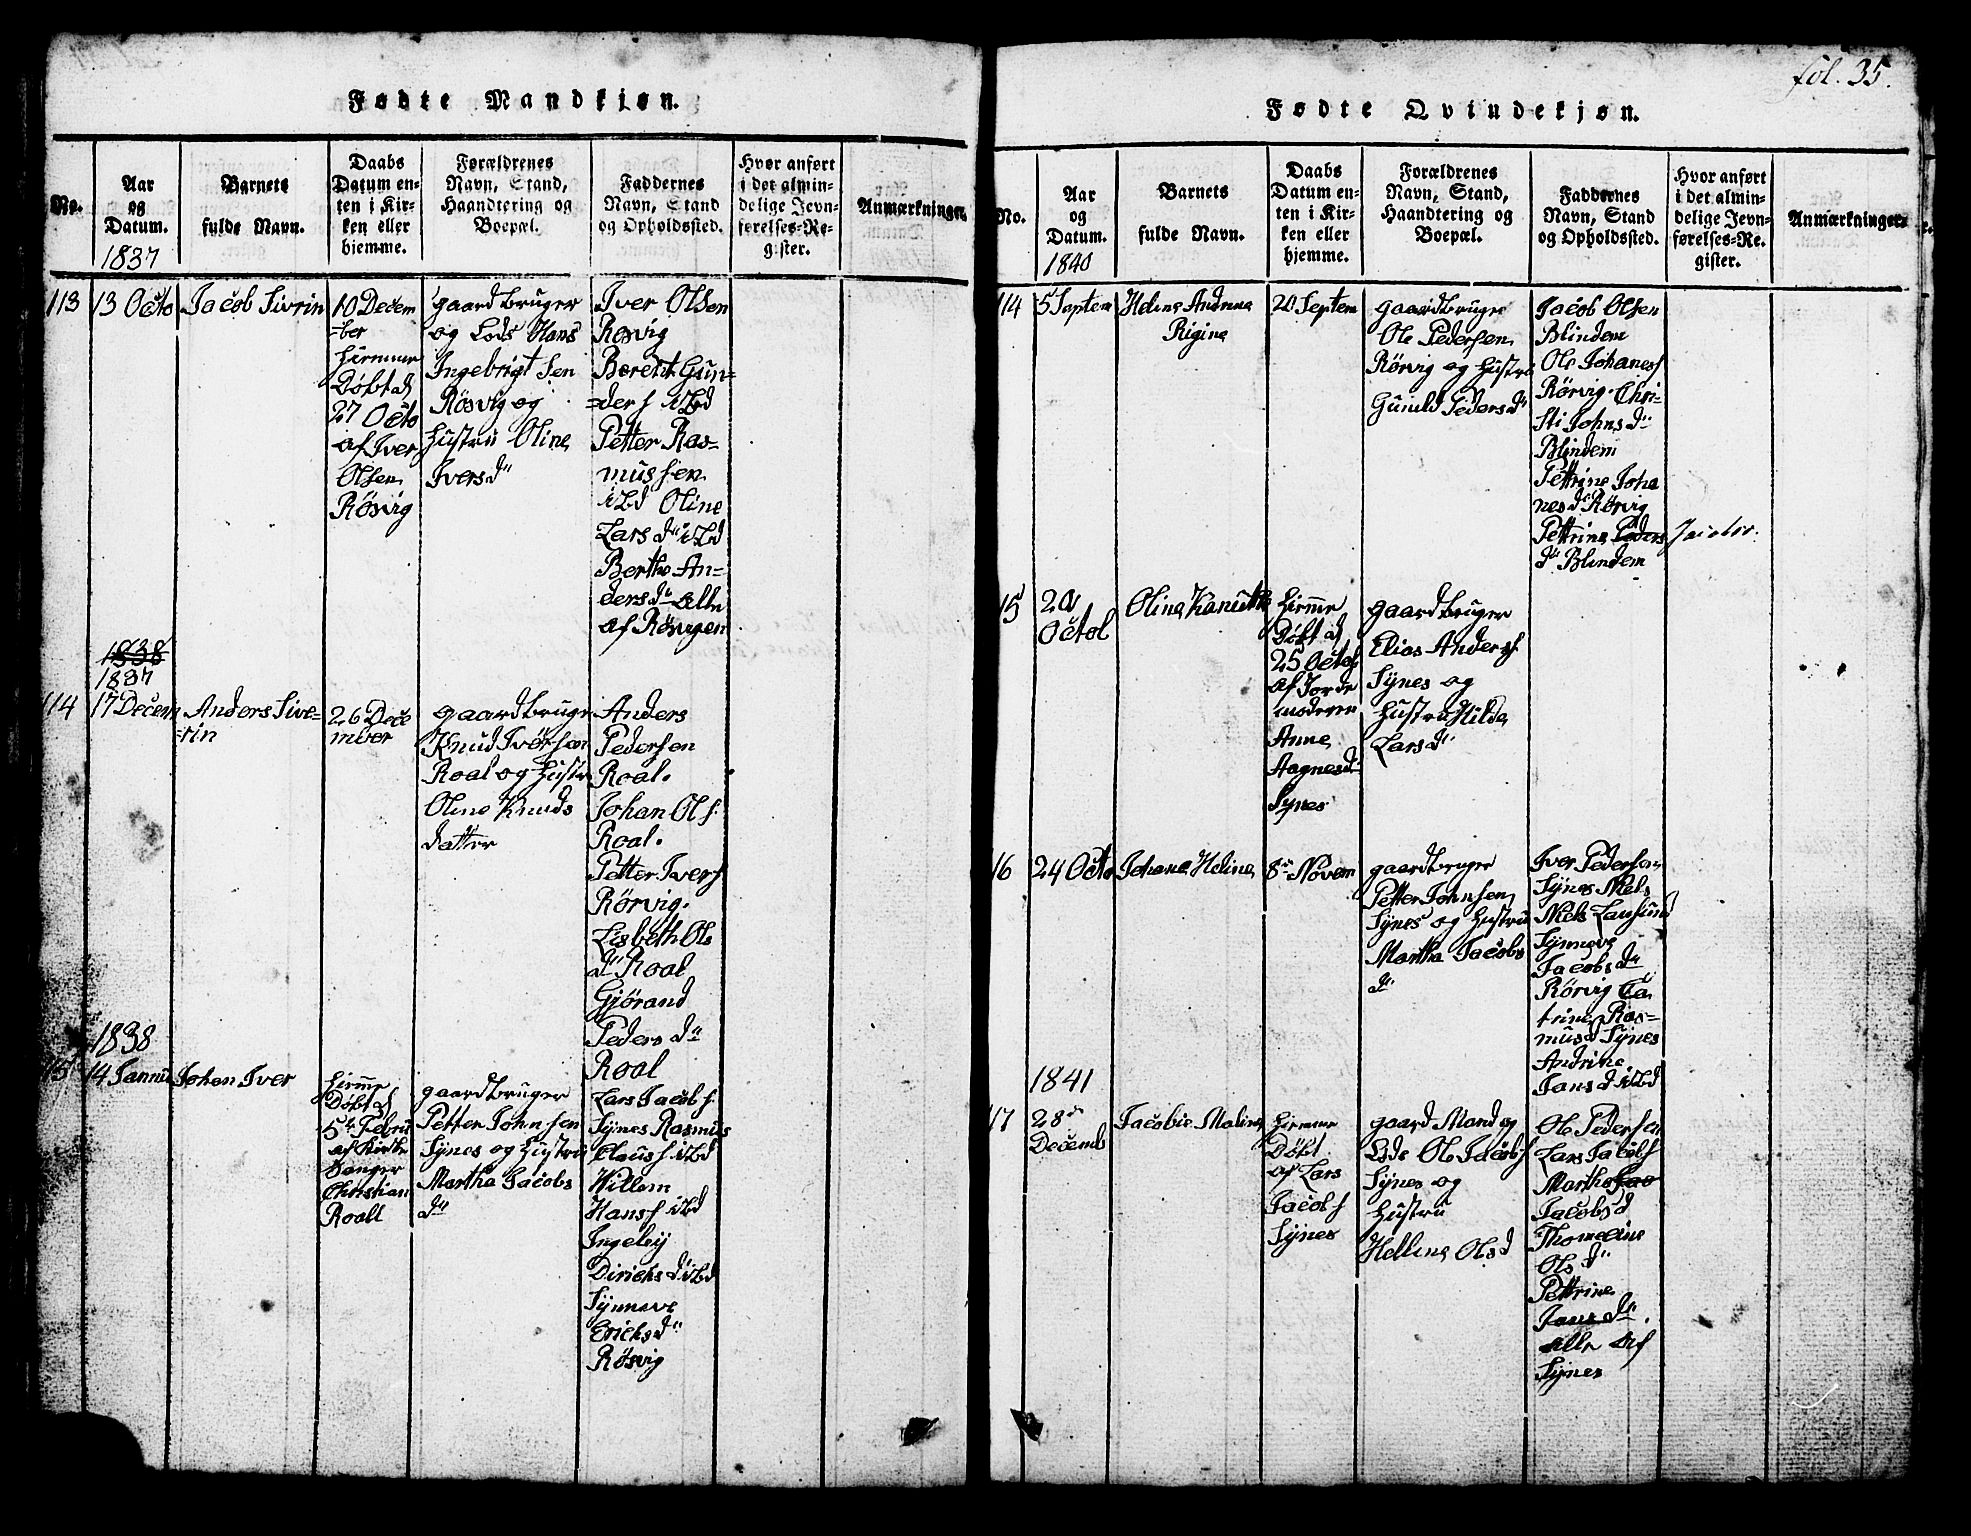 fol. 35.
Fødte Mandkjøn.
No.
Aar
og
Datum.
1837
Barnets
fulde Navn.
Daabs
Datum en-
ten i Kir-
ken eller
hjemme.
Forældrenes
Navn, Stand,
Haandtering og
Boepæl.
Faddernes
Navn, Stand
og Opholdssted.
Hvor anført
i det almin-
delige Jevn-
førelses-Re-
gister.
Anmærkninger.
113
13 Octo
Jacob Sivrin
10 Decem
-ber
Hiemme
Døbt d
27 Octo
af Iver
Olsen
Røsvig
gaardbruger
og Lods Hans
Ingebrigtsen
Røsvig og
Hustru Oline
Iversd"
Iver Olsen
Røsvig
Berent Gun-
ders izbd
Petter Ras-
mussen
izbd Oline
Lars d" izbd
Berthe An-
ders d" alle
af Røsvigen
1838
1837
114
17 Decem
Anders Sive-
-rin
26 Dece
mber
gaardbruge
Knud Ivørsen
Roal og Hustr
Oline Knuds
datter
Anders
Pedersen
Roal.
Johan Ols.
Roal.
Petter Ivers
Rørvig.
Lisbeth Ols
d" Roal
Gjørand
Peders d"
Roal
1838
115
14 Jannu
Johan Iver
Hiemme
Døbt d
5te Febru
af Kirke
Sanger
Christian
Roall
gaardbruger
Petter Johnsen
Synes og Hustru
Martha Jacobs
d"
Lars Jacobs
Synes Rasmus
Claus s izbd
Willem
Hans s izbd
Ingeby
Dirichs d" izbd
Synneve
Erichs d"
Røsvig
Fødte Qvindekjøn.
No.
Aar
og
Datum.
1840
Barnets
fulde Navn.
Daabs
Datum en-
ten i Kir-
ken eller
hjemme.
Forældrenes
Navn, Stand,
Haandtering og
Boepæl.
Faddernes
Navn, Stand
og Opholdssted.
Hvor anført
i det almin-
delige Jevn-
førelses-Re.
gister.
Anmærkninger.
14
5 Septem
Helene Andrea
Rigine
20 Septem
gaardbruger
Ole Pedersen
Rørvig og Hustru
Gunild Peders d"
Jacob Olsen
Blindem
Ole Johaness
Rørvig. Chri-
sti Johns d"
Blindem
Pettrine Joha
nesd Rørvig
Pettrine Peders
Jacobs.
d" Blindem
15
20
Octob
Olina Kanutte
Hiemme
Døbt d
25 Octob
af Jorde
moderen
Anne
Aagnesd
Synes
gaardbruger
Elias Anderss
Synes og
Hustru Hilde
Lars d"
16
24 Octo
Johana Heline
8de Novem
gaardbruger
Petter Johnsen
Synes og Hustru
Martha Jacobs
d"
Iver Pedersen
Synes Niels
Niels Lausund
Synneve
Jacobs d"
Rørvig Ca
trine Ras-
musd Synes
Andrine
Jans d izbd
1841
17
28de
Decemb
Jacobie Maline
Hiemme
Døbt
af Lars
Jacobs
Synes
gaard Mand og
Lods Ole Jacobs
Synes og
Hustru
Hellene Olsd
Ole Pedersen
Lars Jacobs
Martha Jac
Jacobsd
Thomeline
Ols d"
Pettrine
Jans d".
alle af
Synes